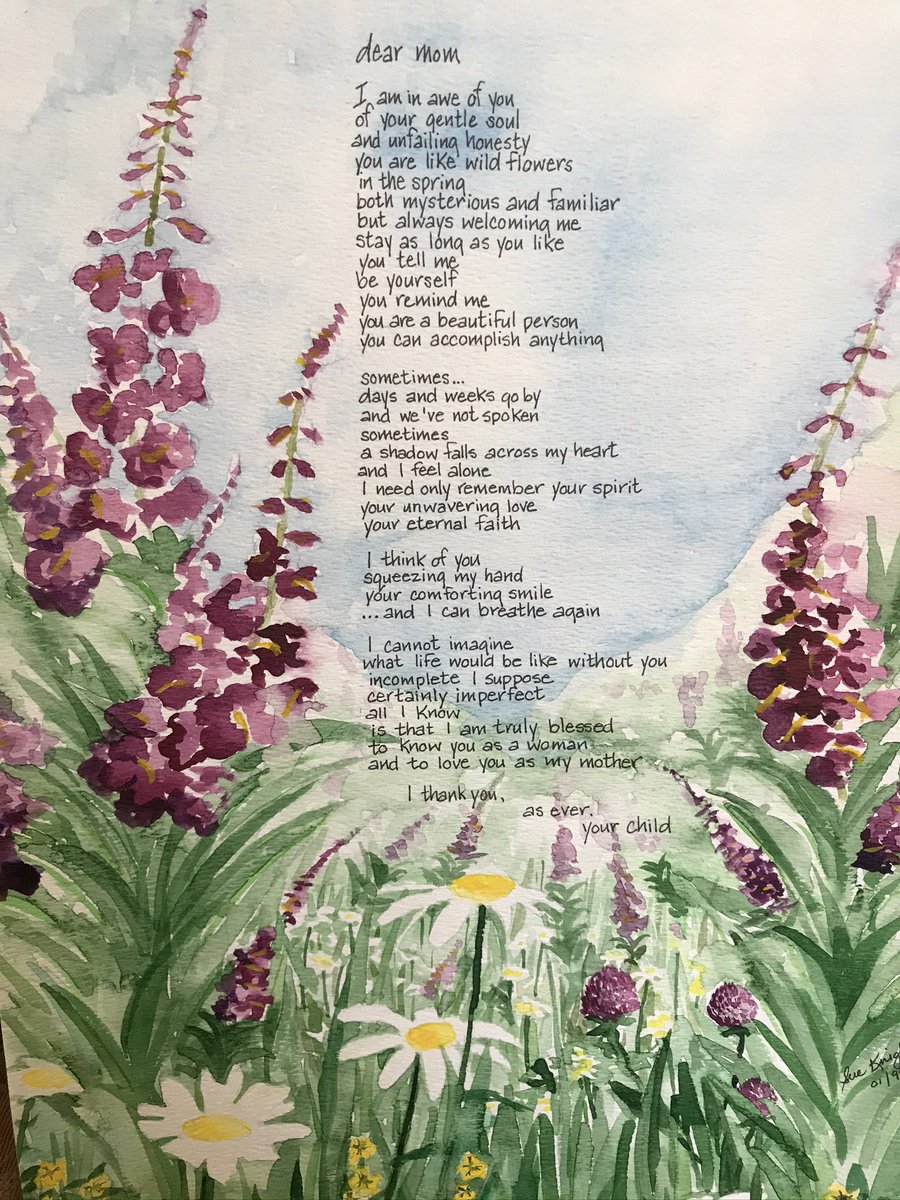 dear mom
I am in awe of you
of your gentle soul
and unfailing honesty
you are like wild flowers
in the spring
both mysterious and familiar
but always welcoming me
stay as long as you like
you tell me
be yourself
you remind me
you are a beautiful person
you can accomplish anything
sometimes...
days and weeks go by
and we've not spoken
sometimes
a shadow falls across my heart
and I feel alone
I need only remember your spirit
your unwavering love
your eternal faith
I think of you
squeezing my hand
your comforting smile
...and I can breathe again
I cannot imagine
what life would be like without you
incomplete I suppose
certainly imperfect
all I know
is that I am truly blessed
to know you as a woman
and to love you as my mother
I thank you,
as ever,
your child
Sue